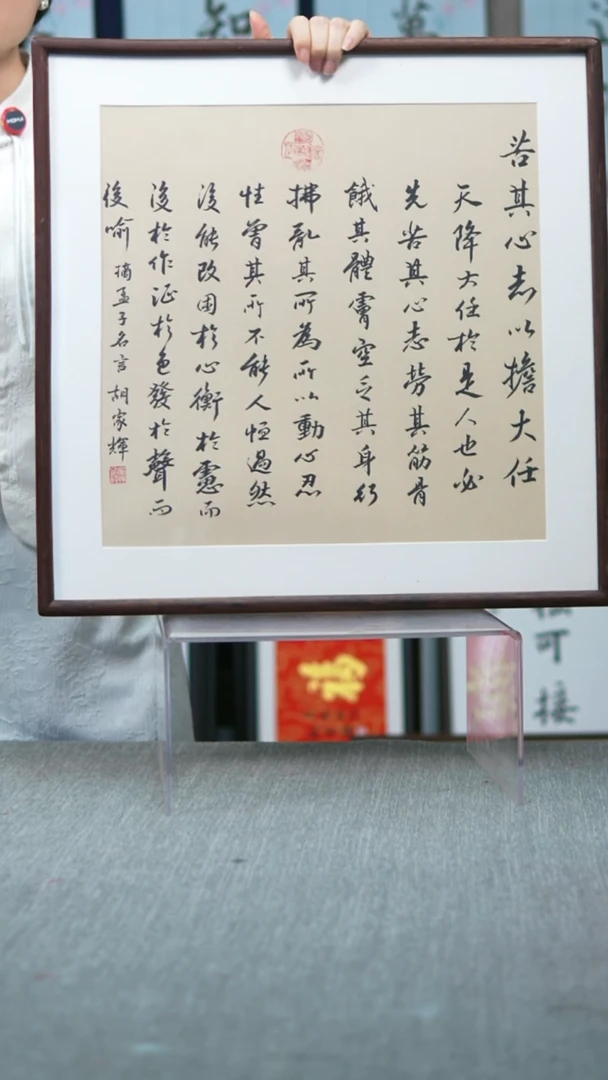 苦其心志以擔大任
天降大任於是人也必
先苦其心志勞其筋骨
餓其體膚空乏其身行
拂亂其所為所以動心忍
性曾其所不能人恒過然
後能改困於心衡於慮而
後於作征於色發於聲而
後喻 摘孟子名言 胡家輝
福
可接